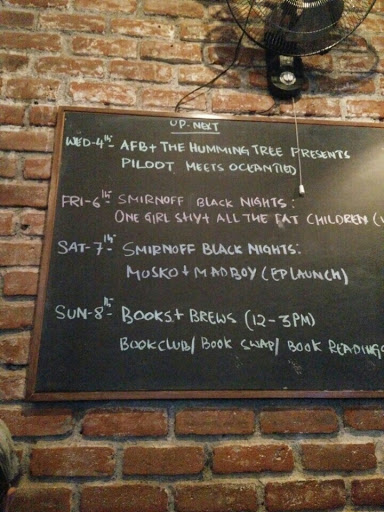 UP-NEXT
WED-4th- AFB+ THE HUMMING TREE PRESENTS
PILOOT MEETS OCEANTIED
FRI-6th- SMIRNOFF BLACK NIGHTS:
ONE GIRL SHY+ ALL THE FAT CHILDREN (
SAT-7th- SMIRNOFF BLACK NIGHTS:
MOSKO+MADBOY (EP LAUNCH)
SUN-8th- BOOKS+ BREWS (12-3PM)
BOOKCLUB/ BOOK SWAP/ BOOK READING